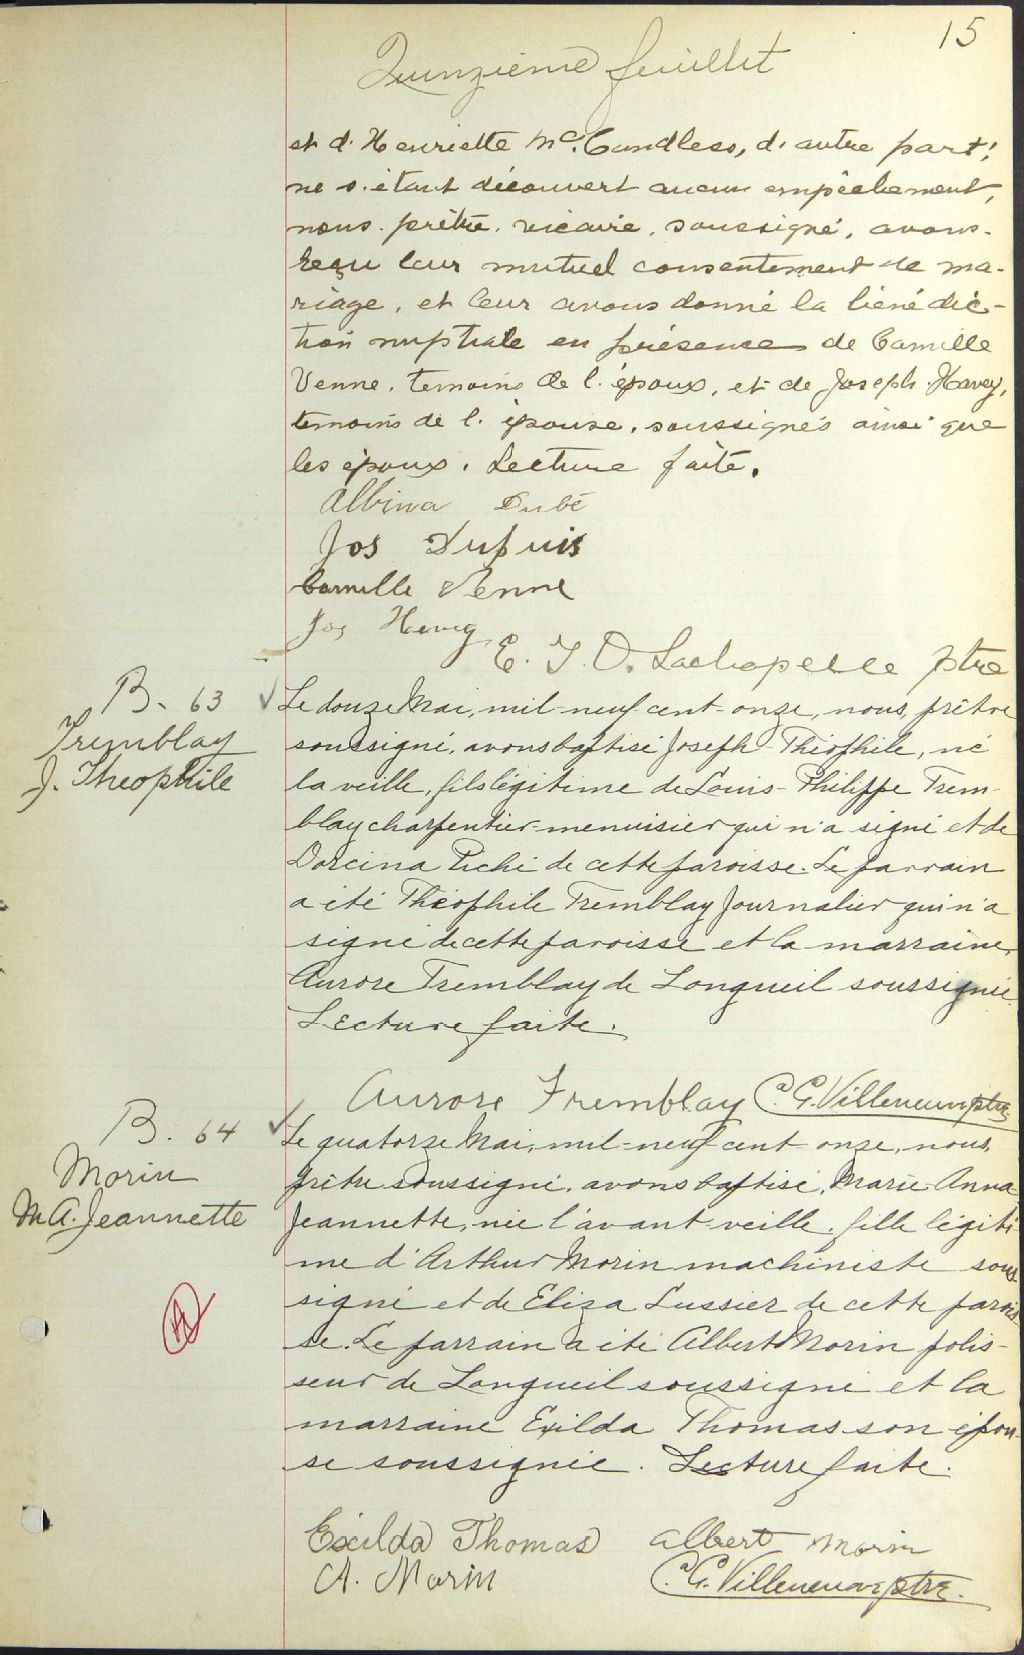 15
Quinzième feuillet
et d'Henriette McCandless, d'autre part;
ne s'étant découvert aucun empêchement,
nous prêtre, vicaire, soussigné, avons
reçu leur mutuel consentement de ma-
riage, et leur avons donné la bénédic-
tion nuptiale en présence de Camille
Venne, temoins de l'époux, et de Joseph
temoins de l'épouse, soussignés ainsi que
les époux. Lecture faite.
Albina Dubé
Jos Dupuis
Camille Venne
Jos
E. J. O. Lachapelle ptre
B. 63
Tremblay
J. Theophile
Le douze Mai, mil-neuf-cent-onze, nous, prêtre
soussigné, avons baptisé Joseph-Théophile, né
la veille, fils légitime de Louis-Philippe Trem-
blay charpentier-menuisier qui n'a signé et de
Dorcina Piché de cette paroisse. Le parrain
a été Théophile Tremblay Journalier qui n'a
signé de cette paroisse et la marraine,
Aurore Tremblay de Longueil soussignée.
Lecture faite.
Aurore Tremblay C. G. Villeneuve ptre
B. 64
Morin
M.A. Jeannette
Le quatorze Mai, mil-neuf-cent onze, nous,
prêtre soussigné, avons baptisé, Marie-Anna
Jeannette, née l'avant-veille, fille légiti-
me d'Arthur Morin machiniste sous
signé et de Eliza Lussier de cette parois
se. Le parrain a été Albert Morin polis-
seur de Longueil soussigné et la
marraine Exilda Thomas son épou-
se soussignée. Lecture faite.
Exilda Thomas Albert Morin
A. Morin C. G. Villeneuve ptre.